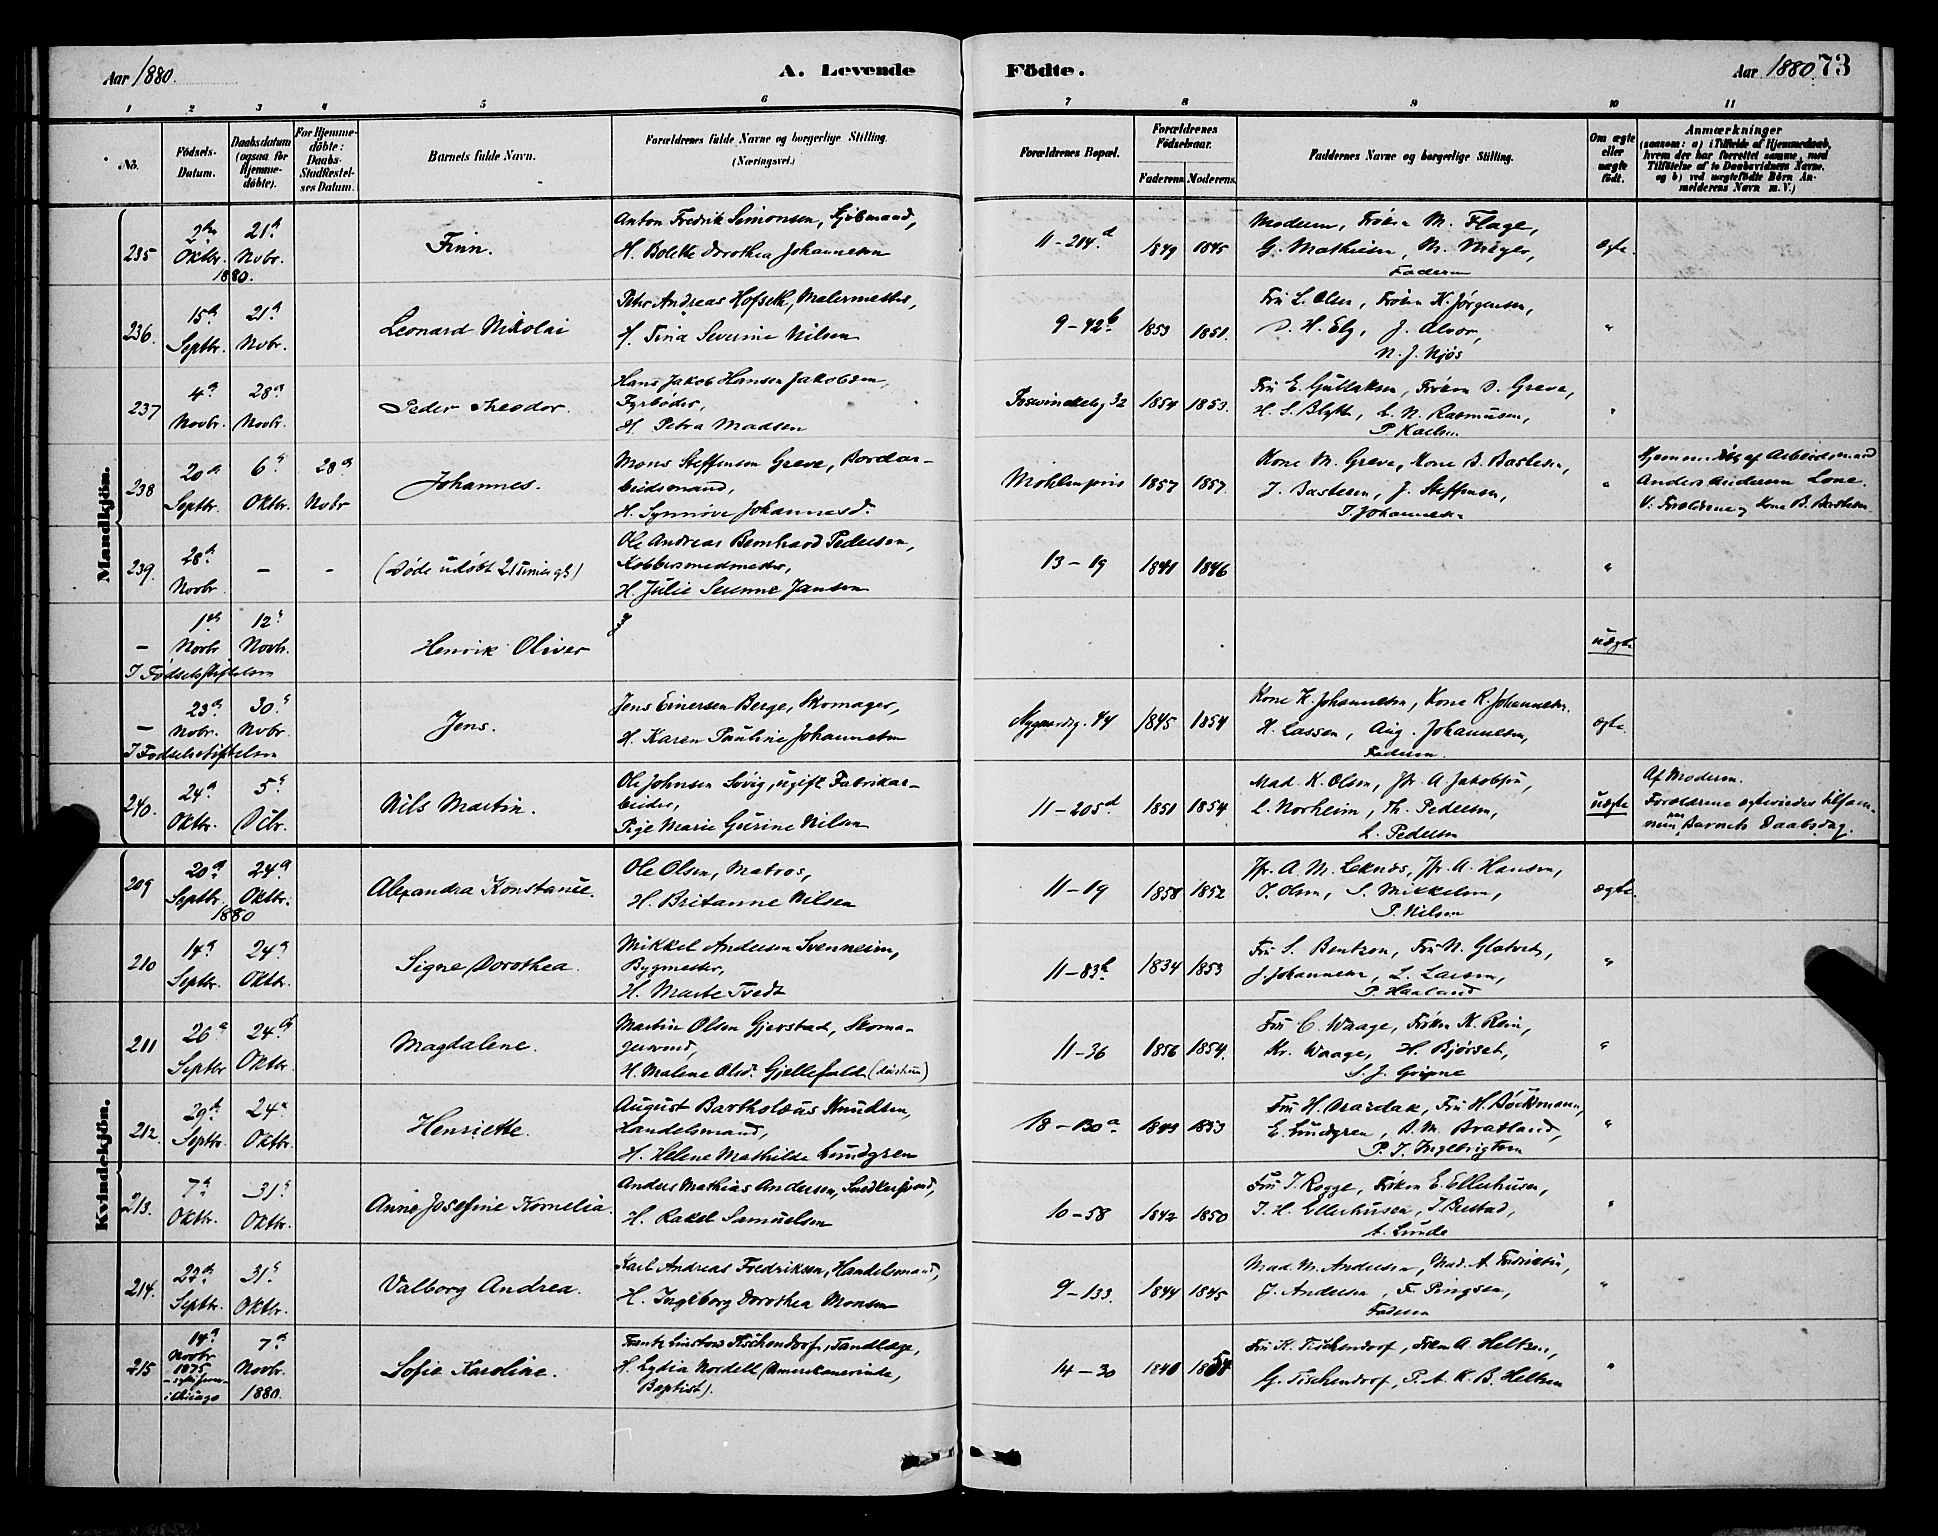 Aar 1880.
A. Levende
Födte.
Aar 1880. 73
1 2 3 4 5 6 7 8 9 10 11
No.
Födsels-
Datum.
Daabsdatum
(ogsaa for
Hjemme-
döbte).
For Hjemme-
döbte:
Daabs-
Stadfæstel-
ses Datum.
Barnets fulde Navn.
Forældrenes fulde Navne og borgerlige Stilling.
(Næringsvei.)
Forældrenes Bopæl.
Forældrenes
Födselsaar.
Faderens. Moderens.
Faddernes Navne og borgerlige Stilling.
Om ægte
eller
uægte
født.
Anmærkninger
(saasom: a) i Tilfælde af Hjemmedaab,
hvem der har forrettet samme, med
Tilföielse af to Daabsvidners Navne,
og b) ved uægtefödte Börn An-
melderens Navn m. V.)
Mandkjön.
235
2den Oktbr. 1880.
21d Nvbr.
Finn.
Anton Fredrik Simonsen, Kjöbmand,
H. Bolette Dorothea Johannesen
11-214d
1849 1845
Moderen, Frøken M. Flage,
G. Mathiesen, M. Meyer,
Faderen
ægte.
236.
15d Septbr.
21d Nvbr.
Leonard Nikolai
Peter Andreas Hofseth, Malermester,
H. Tina Severine Nilsen
9-42b
1853 1851.
Fru L. Olsen, Frøken K. Jørgensen,
J. Alvær,
N. J. Njøs
"
237
4d Novbr.
28d Novbr.
Peder Theodor.
Hans Jakob Hansen Jakobsen,
Fyrbøder,
H. Petra Madsen
32
1854 1853.
Fru E. Gullaksen, Frøken D. Greve,
H. S. Blyth, E. N. Rasmussen,
P. Karlsen
"
238
20d Septbr.
6d Oktbr.
28d Nobr
Johannes.
Mons Steffensen Greve, Bordar-
beidsmand,
H. Synnöve Johannesd.
Möhlenpris
1857 1857.
Kone M. Greve, Kone B. Bastesen,
J. Bastesen, J. Steffensen,
J. Johannesen
"
Hjemmedöbt af Arbeidsmand
Anders Andersen Lone.
V: Forældrene og Kone B. Bastesen
239.
28d Novbr.
- -
(Døde udøbt 21 Timer gl.)
Ole Andreas Bernhard Pedersen,
Kobbersmedmester,
H. Julie Severine Jansen
13-19
1841 1846
"
-
1ste Novbr
12d Novbr.
I Fødselsstiftelsen
Henrik Oliver
uægte
-
23d Novbr.
30d Nvbr.
I Fødselsstiftelsen
Jens.
Jens Einersen Berge, Skomager,
H. Karen Pauline Johannesen
Nygaardsg. 44
1845 1854
Kone K. Johannesen, Kone R. Johannesen.
H. Lassen, Aug. Johannesen,
Faderen.
ægte.
240.
24d Oktbr.
5d Dcbr.
Nils Martin.
Ole Johnsen Sivig, ugift Fabrikar-
beider,
Pige Marie Gurine Nilsen
11-205d
1851 1854
Mad. K. Olsen, Jfr. A. Jakobsen,
L. Norheim, Th. Pedersen,
L. Pedersen
uægte
Af Moderen.
Forældrene ægteviedes tilsam-
men paa Barnets Daabsdag.
Kvindekjön.
209
20d Septbr. 1880
24d Oktbr.
Alexandra Konstanse.
Ole Olsen, Matros,
H. Britanne Nilsen
11-19
1858 1852
Jfr. A. M. Leknes, Jfr. A. Hansen,
J. Olsen, S. Mikkelsen,
P. Nilsen
ægte.
210
14d Septbr.
24d Oktbr.
Signe Dorothea.
Mikkel Andersen Svenneson,
Bygmester,
H. Marte Tvedt
11-83b
1834 1853
Fru S. Bentzen, Fru N. Glatved,
J. Johannesen, L. Larsen,
P. Haaland
"
211
26d Septbr
24d Oktbr.
Magdalene.
Martin Olsen Gjerstad, Skoma-
gersvend,
H. Malene Olsd. Gjellefald
11-36
1856 1854.
Fru C. Waage, Frøken K. Rein,
Kr. Waage, H. Bjørset,
S. J. Gripne
"
212.
29d Septbr.
24d Oktbr.
Henriette.
August Bartholæus Knudsen,
Handelsmand,
H. Helene Mathilde Lundgren
18-130a
1849 1853
Fru H. Böckmann,
E. Lundgren, D. M. Bratland,
P. J. Ingebrigtsen
"
213.
7d Oktbr.
31d Oktbr.
Anne Josefine Kornelia.
Anders Mathias Andersen, Snedkersvend,
H. Rakel Samuelsen
10-58
1842 1850
Fru J. Rogge, Frøken E. Ellerhusen,
J. H. Ellerhusen, J. Bustad,
A. Lunde
"
214.
22d Septbr.
31d Oktbr.
Valborg Andrea.
Karl Andreas Fredriksen, Handelsmand,
H. Ingeborg Dorothea Monsen
9-133.
1844 1845
Mad. M. Andersen, Mad. A. Fredriksen,
J. Andersen, F. Pingsen,
Faderen
"
215
14d Novbr 1875
i Chicago
7d Novbr. 1880.
Sofie Karoline.
Frantz Linstow Tischendorf, Tandlæge,
H. Lydia Nordell (Amerikanerinde,
Baptist).
14-30
1840 1854
Fru K. Tischendorf, Frøken A. Heltzen,
G. Tischendorf, P. A. K. B. Heltzen
"